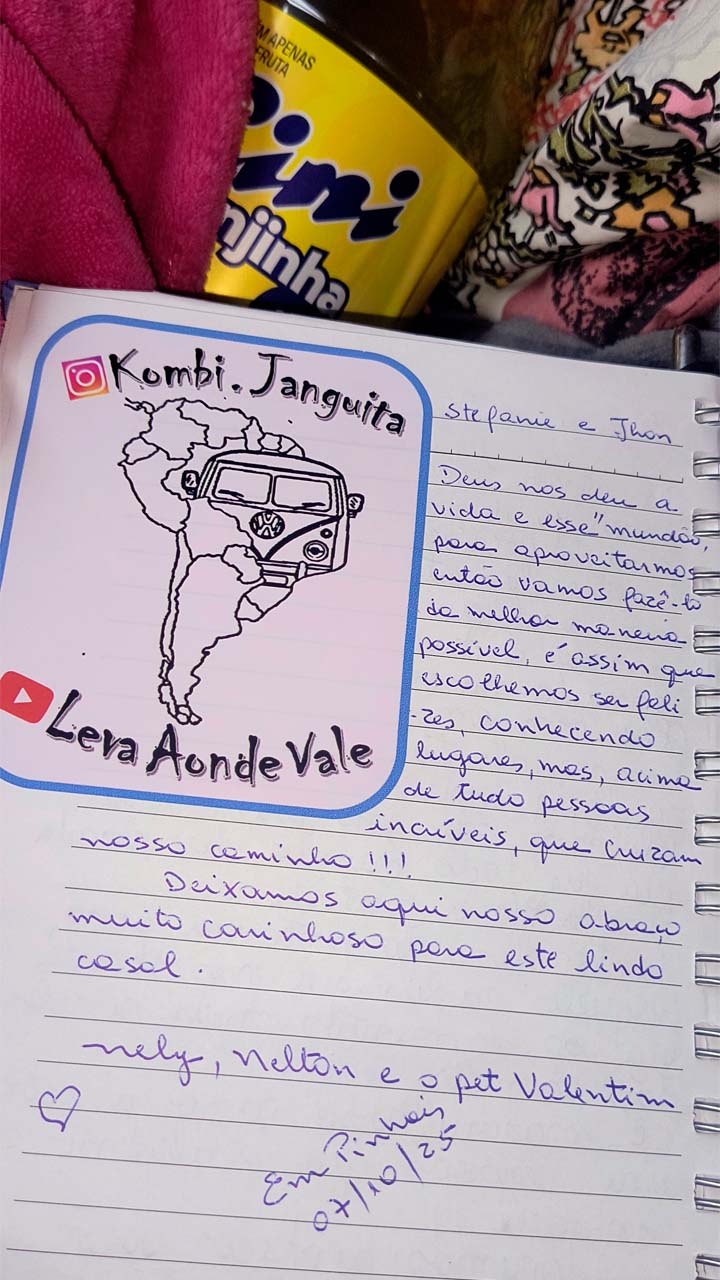 M APENAS
FRUTA
ini
njinha
Kombi.Janguita
Leva Aonde Vale
Stefanie e Jhon
Deus nos deu a
vida e esse "mundão,
para aproveitarmos
então vamos fazê-lo
da melhor maneira
possível, é assim que
escolhemos ser feli
-zes, conhecendo
lugares, mas, acima
de tudo pessoas
incríveis, que cruzam
nosso caminho !!!
Deixamos aqui nosso abraço
muito carinhoso para este lindo
casal.
Nely, Nelton e o pet Valentim
Em Pinhais
07/10/25